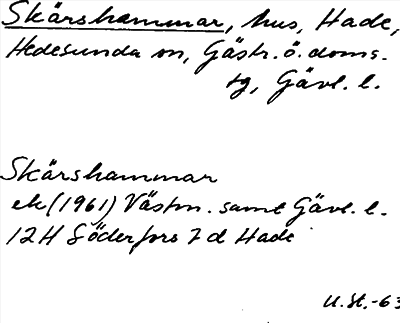 Skärshammar, hus, Hade,
Hedesunda sn, Gästr. ö. doms.
tg, Gävl. l.
Skärshammar
ek (1961) Västm. samt Gävl. l.
12H Söderfors 7 d Hade
U.St.-63